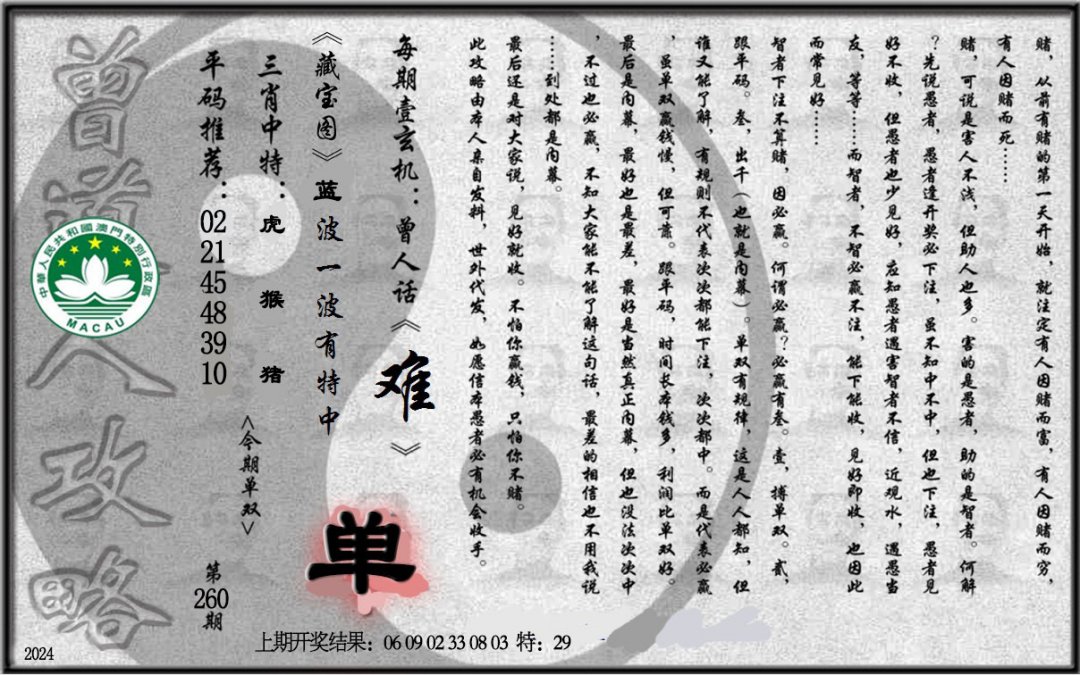 赌，从前有赌的第一天开始，就注定有人因赌而富，有人因赌而穷，
有人因赌而死……
赌，可说是害人不浅，但助人也多。害的是愚者，助的是智者。何解
？先说愚者，愚者逢开奖必下注，虽不知中不中，但也下注，愚者见
好不收，但愚者也少见好，应知愚者遇害智者不信，近观水，遇愚当
友，等等……而智者，不智必赢不注，能下能收，见好即收，也因此
而常见好……
智者下注不算赌，因必赢。何谓必赢？必赢有叁。壹，搏单双。贰，
跟平码。叁，出千（也就是内幕）。单双有规律，这是人人都知，但
谁又能了解，有规则不代表次次都能下注，次次都中。而是代表必赢
，虽单双赢钱慢，但可靠。跟平码，时间长本钱多，利润比单双好。
最后是内幕，最好也是最差，最好是当然真正内幕，但也没法次次中
，不过也必赢，不知大家能不能了解这句话，最差的相信也不用我说
……到处都是内幕。
最后还是对大家说，见好就收。不怕你赢钱，只怕你不赌。
此攻略由本人亲自发料，世外代发，如愿信本愚者必有机会收手。
每期壹玄机：曾人话《难》
《藏宝图》蓝波一波有特中
三肖中特：虎 猴 猪
<今期单双>
单
平码推荐：02 21 45 48 39 10
第260期
曾道人攻略
中華人民共和國澳門特別行政區
MACAU
上期开奖结果：06 09 02 33 08 03 特：29
2024